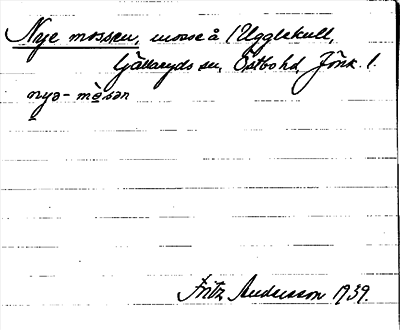 Nye mossen, mosse å Ugglekull,
Gällaryds sn, Östbo hd, Jönk. l.
nyə- mòsən
Fritz Andersson 1939.